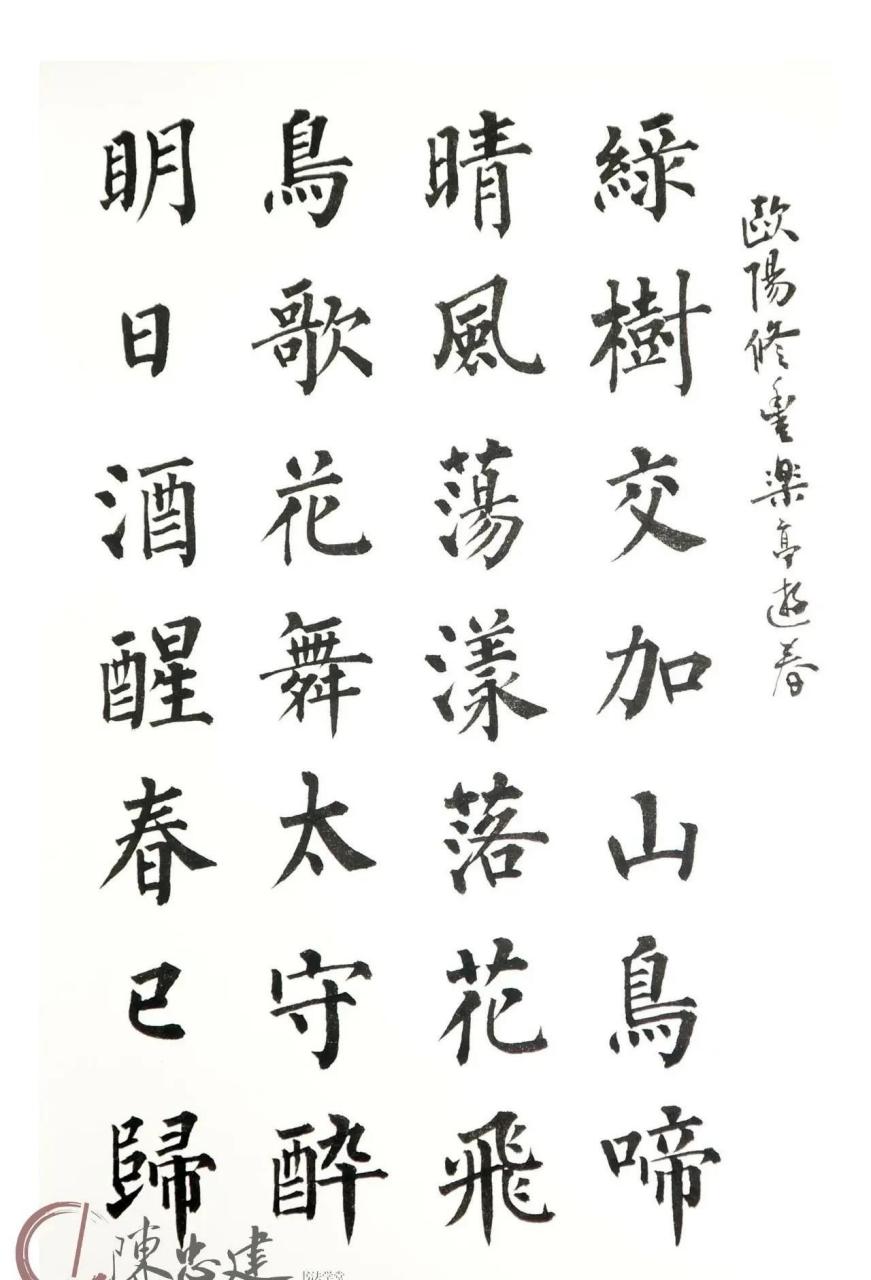 歐陽修豐樂亭遊春
綠樹交加山鳥啼
晴風蕩漾落花飛
鳥歌花舞太守醉
明日酒醒春已歸
陳忠建
书法学堂